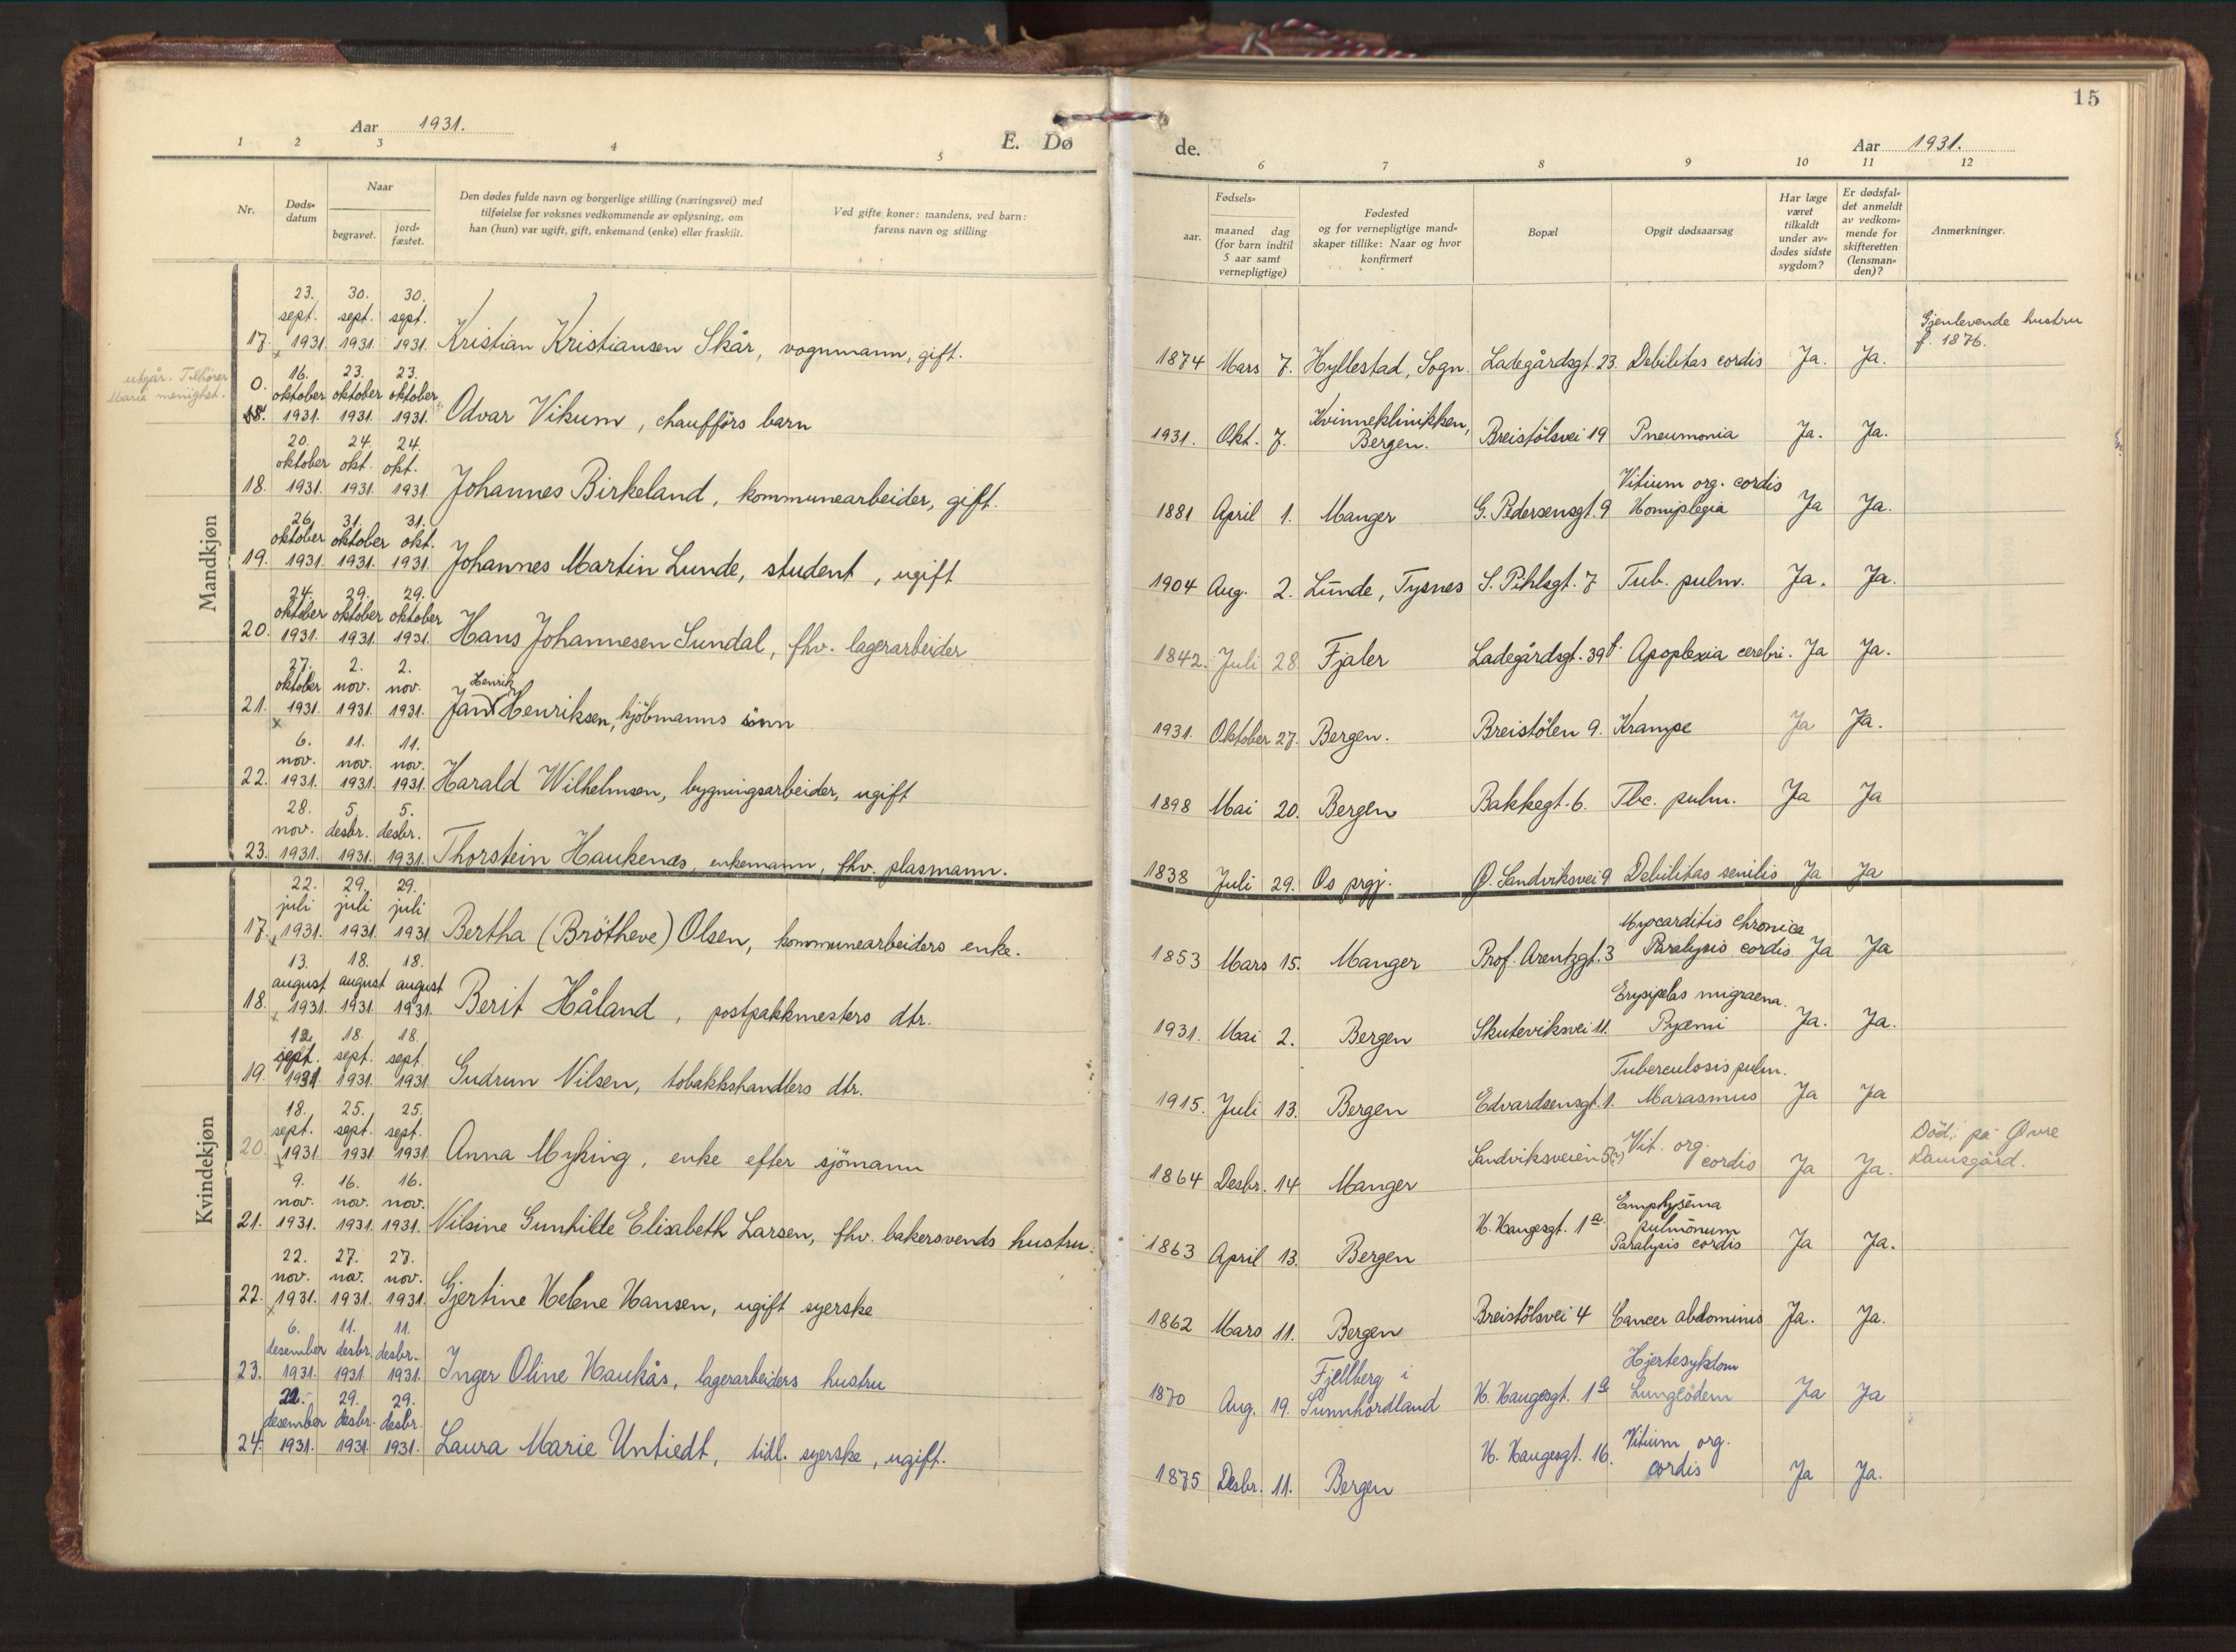 15
Aar 1931.
E. Dø
de.
Aar 1931.
1 2 3 4 5
6 7 8 9 10 11 12
Nr.
Døds-
datum
Naar
begravet.
jord-
fæstet.
Den dødes fulde navn og borgerlige stilling (næringsvei) med
tilføielse for voksnes vedkommende av oplysning, om
han (hun) var ugift, gift, enkemand (enke) eller fraskilt.
Ved gifte koner: mandens, ved barn:
farens navn og stilling
Fødsels-
aar.
maaned dag
(for barn indtil
5 aar samt
vernepligtige)
Fødested
og for vernepligtige mand-
skaper tillike: Naar og hvor
konfirmert
Bopæl
Opgit dødsaarsag
Har læge
været
tilkaldt
under av-
dødes sidste
sygdom?
Er dødsfal-
det anmeldt
av vedkom-
mende for
skifteretten
(lensman-
den)?
Anmerkninger.
Mandkjøn
23. 30. 30.
sept. sept. sept.
17. 1931. 1931. 1931. Kristian Kristiansen Skår, vognmann, gift.
1874 Mars 7. Hyllestad, Sogn. Ladegårdsgt. 23. Debilitas cordis Ja. Ja.
Gjenlevende hustru
f. 1876.
utgår. Tilhører
Maria menighet.
16. 23. 23.
0. oktober oktober oktober
18. 1931. 1931. 1931. Odvar Vikum, chaufförs barn
1931. Okt. 7. Kvinneklinikken,
Bergen. Breistölsvei 19 Pneumonia Ja. Ja.
20. 24. 24.
oktober okt. okt.
18. 1931. 1931. 1931 Johannes Birkeland, kommunearbeider, gift.
Vitium org. cordis
1881 April 1. Manger G. Pedersensgt. 9 Hemiplegia Ja Ja.
26. 31. 31.
oktober oktober okt.
19. 1931. 1931. 1931. Johannes Martin Lunde, student, ugift
1904 Aug. 2. Lunde, Tysnes S. Pihlsgt. 7 Tub. pulm. Ja. Ja.
24. 29. 29.
oktober oktober oktober
20. 1931. 1931. 1931. Hans Johannesen Sundal, fhv. lagerarbeider
1842. Juli 28. Fjaler Ladegårdsgt. 39 Apoplexia cerebri. Ja Ja.
27. 2. 2.
oktober nov. nov. Henrik
21. 1931. 1931. 1931. Jan Henriksen, kjöbmanns sönn
1931. Oktober 27. Bergen. Breistölen 9. Krampe Ja Ja.
6. 11. 11.
nov. nov. nov.
22. 1931. 1931. 1931. Harald Wilhelmsen, bygningsarbeider, ugift
1898 Mai 20. Bergen Bakkegt. 6. Tbc. pulm. Ja Ja
28. 5. 5.
nov. desbr. desbr.
23. 1931. 1931. 1931. Thorstein Haukenæs, enkemann, fhv. plasmann.
1838 Juli 29. Os prgj. Ø. Sandviksvei 9 Debilitas senilis Ja Ja
Kvindekjøn
22. 29. 29.
juli juli juli
17. 1931. 1931. 1931 Bertha (Brötheve) Olsen, kommunearbeiders enke.
Myocarditis chronica
1853 Mars 15. Manger Prof. Arentzgt. 3 Paralysis cordis Ja Ja
13. 18. 18.
august august august
18. 1931. 1931. 1931. Berit Håland, postpakkmesters dtr.
Erysipelas migraena.
1931. Mai 2. Bergen Skuteviksvei 11. Pyæmi Ja. Ja.
12. 18. 18.
sept. sept. sept.
19. 1931 1931. 1931 Gudrun Nilsen, tobakkshandlers dtr.
Tuberculosis pulm.
1915. Juli 13. Bergen Edvardsensgt. 1. Marasmus Ja Ja
18. 25. 25.
sept. sept. sept.
20. 1931. 1931 1931 Anna Myking, enke efter sjömann
Sandviksveien Vit. org.
1864 Desbr. 14 Manger cordis Ja Ja.
Död: på Øvre
Damsgård.
9. 16. 16.
nov. nov. nov.
21. 1931. 1931. 1931. Nilsine Gunhilde Elisabeth Larsen, fhv. bakersvends hustru.
Emphysema
pulmonum
1863 April 13. Bergen H. Haugesgt. 1a Paralysis cordis Ja Ja.
22. 27. 27.
nov. nov. nov.
22. 1931. 1931. 1931. Gjertine Helene Hansen, ugift syerske
1862 Mars 11. Bergen Breistölsvei 4 Cancer abdominis Ja. Ja.
6. 11. 11.
desember desbr. desbr.
23. 1931. 1931. 1931. Inger Oline Haukås, lagerarbeiders hustru
Fjellberg i Hjertesykdom
1870 Aug. 19. Sunnhordland H. Haugesgt. 1a Lungeödem Ja Ja
22. 29. 29.
desember desbr. desbr.
24. 1931. 1931. 1931. Laura Marie Untiedt, tidl. syerske, ugift.
Vitium org.
1875 Desbr. 11. Bergen H. Haugesgt. 16. cordis Ja Ja.